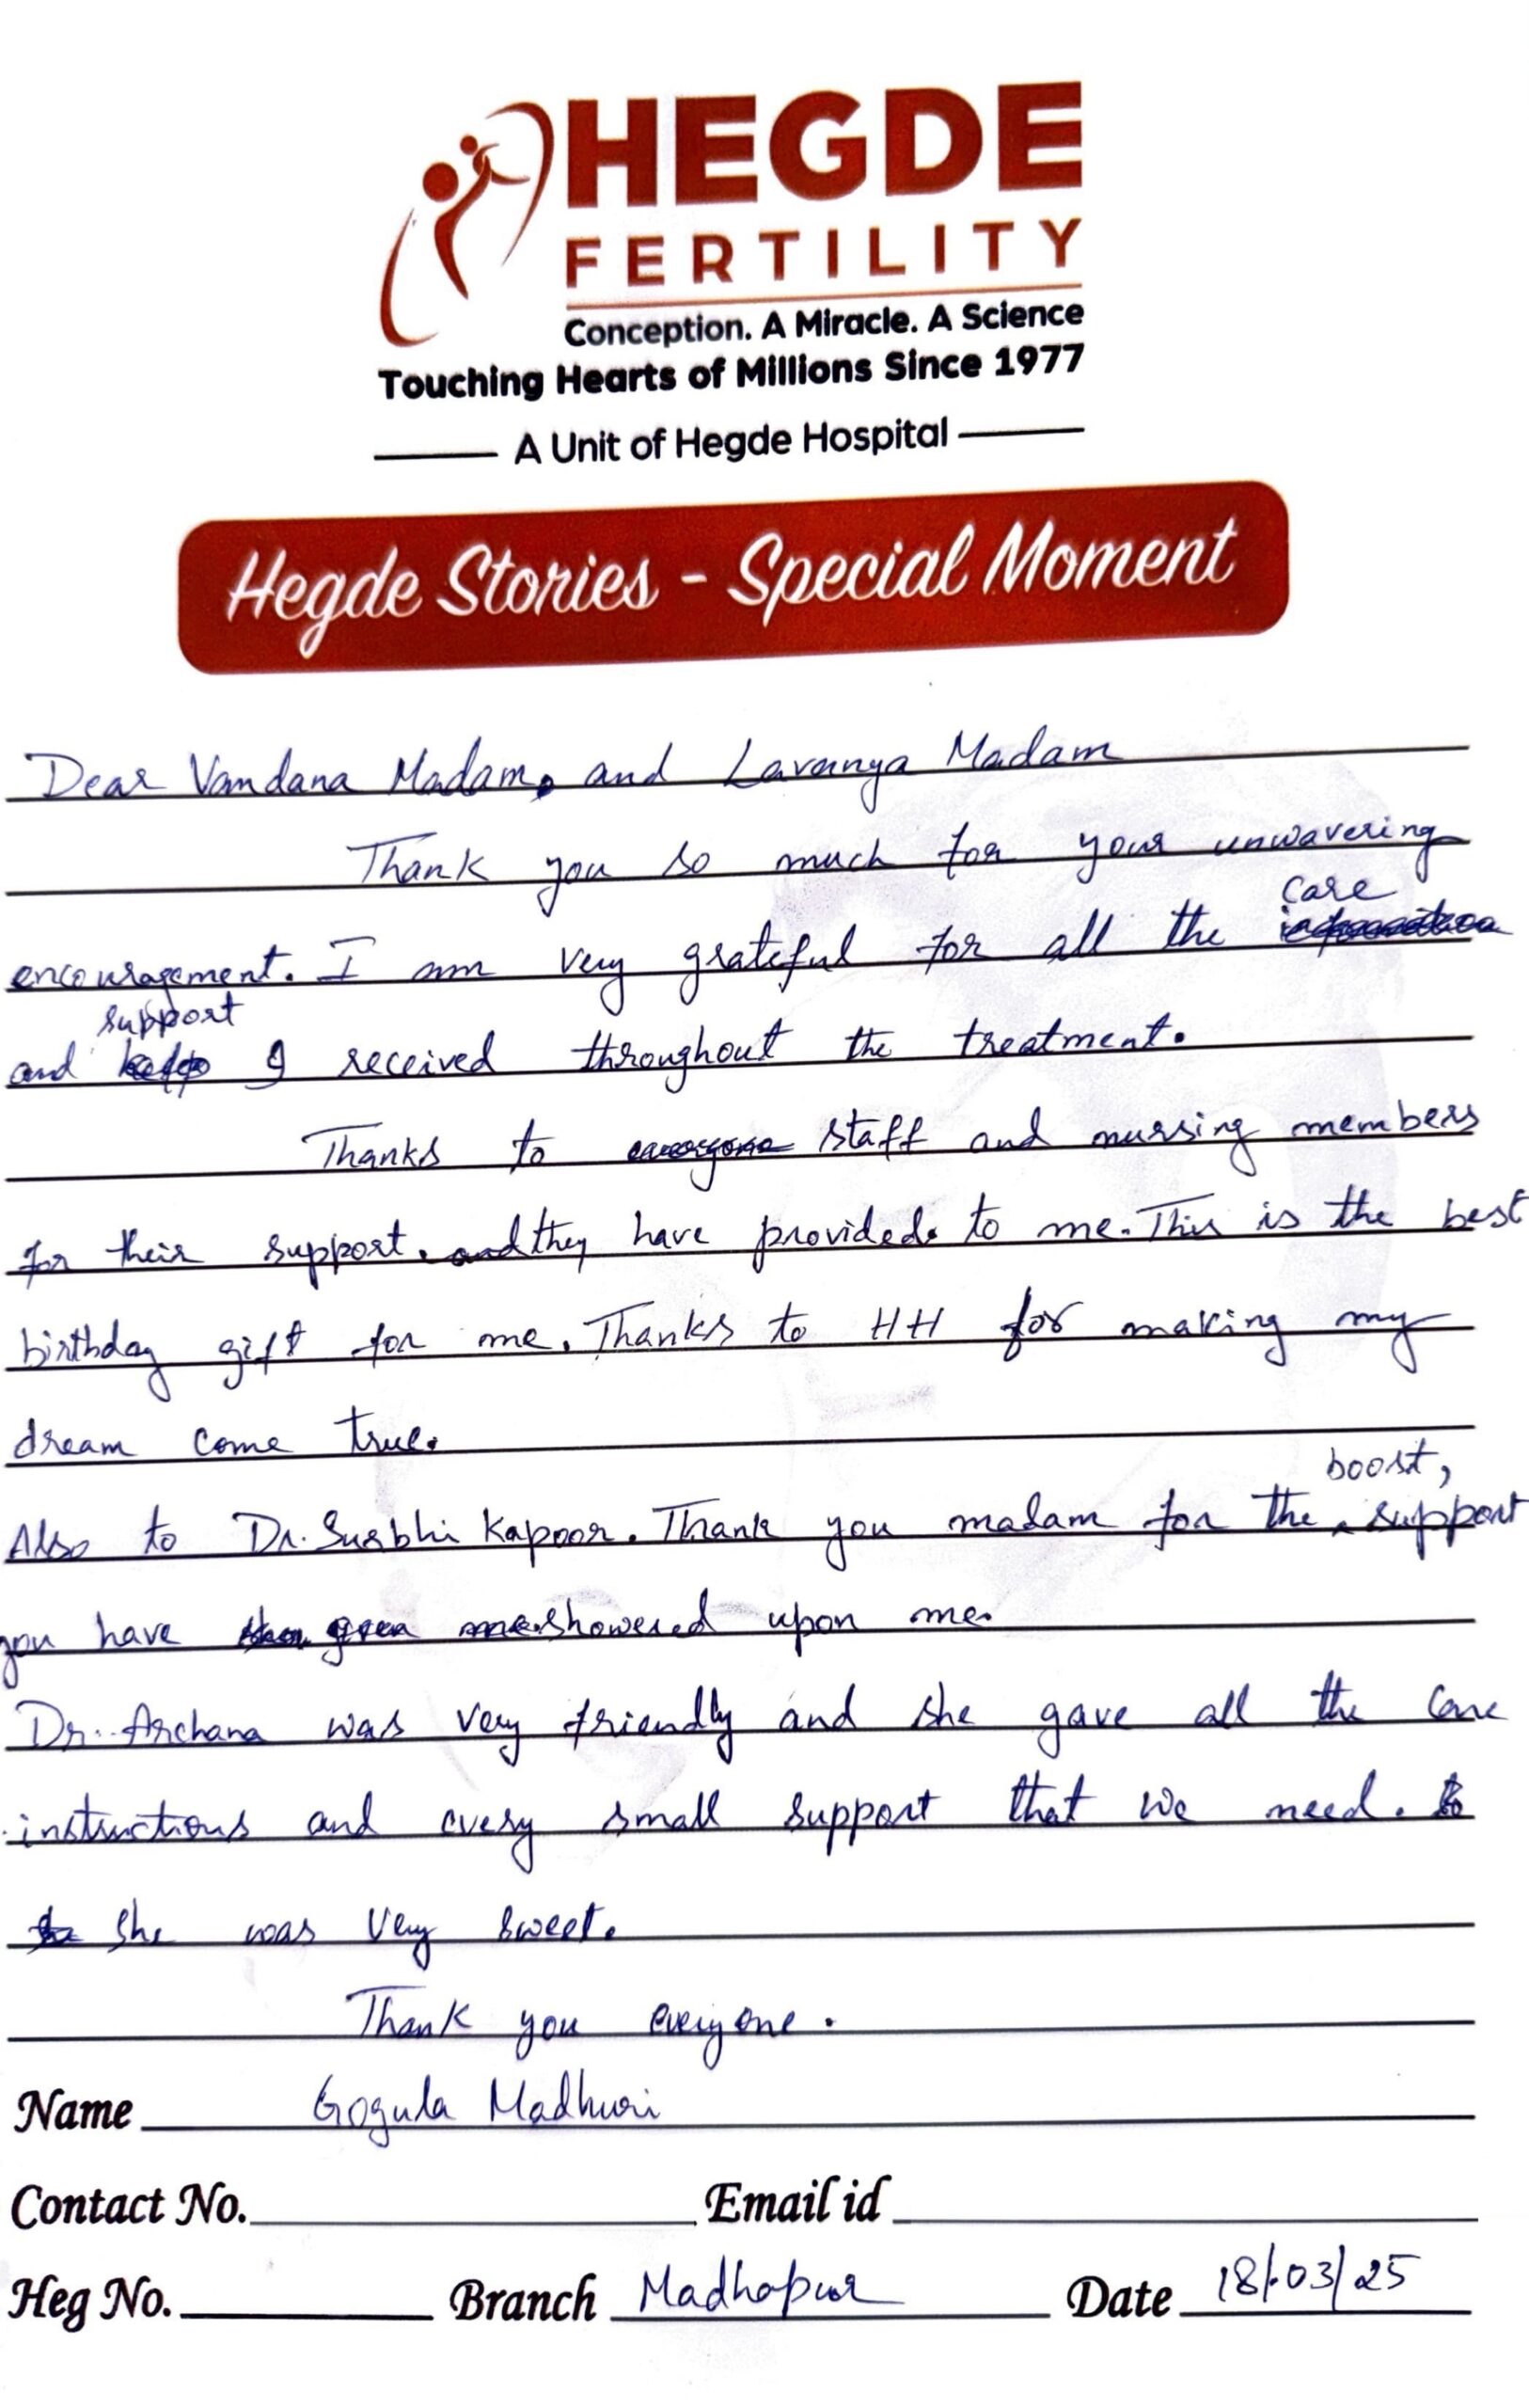 HEGDE
FERTILITY
Conception. A Miracle. A Science
Touching Hearts of Millions Since 1977
A Unit of Hegde Hospital
Hegde Stories - Special Moment
Dear Vandana Madam, and Lavanya Madam
Thank you so much for your unwavering
care
encouragement. I am very grateful for all the
support
and I received throughout the treatment.
Thanks to staff and nursing members
for their support. and they have provided to me. This is the best
birthday gift for me. Thanks to HH for making my
dream come true.
boost,
Also to Dr. Surbhi Kapoor. Thank you madam for the support
you have showered upon me.
Dr. Archana was very friendly and she gave all the care
instructions and every small support that we need.
she was very sweet.
Thank you everyone.
Name Gogula Madhuri
Contact No. Email id
Heg No. Branch Madhapur Date 18/03/25